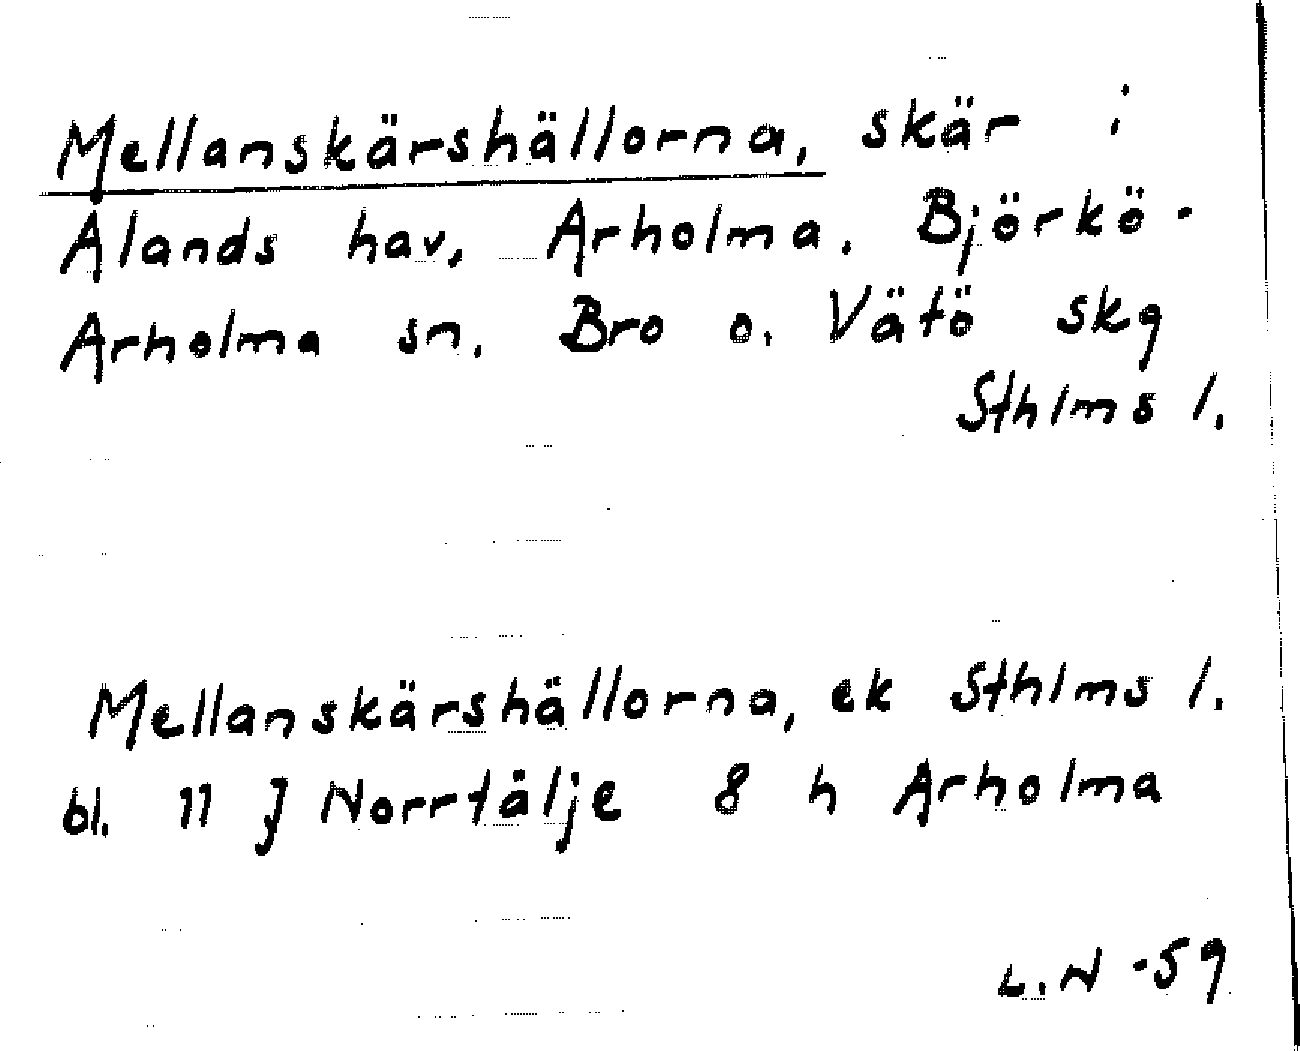 Mellanskärshällorna, skär i
Ålands hav, Arholma. Björkö-
Arholma sn. Bro o. Vätö skg
Sthlms l.
Mellanskärshällorna, ek Sthlms l.
bl. 11 J Norrtälje 8 h Arholma
L.N -59